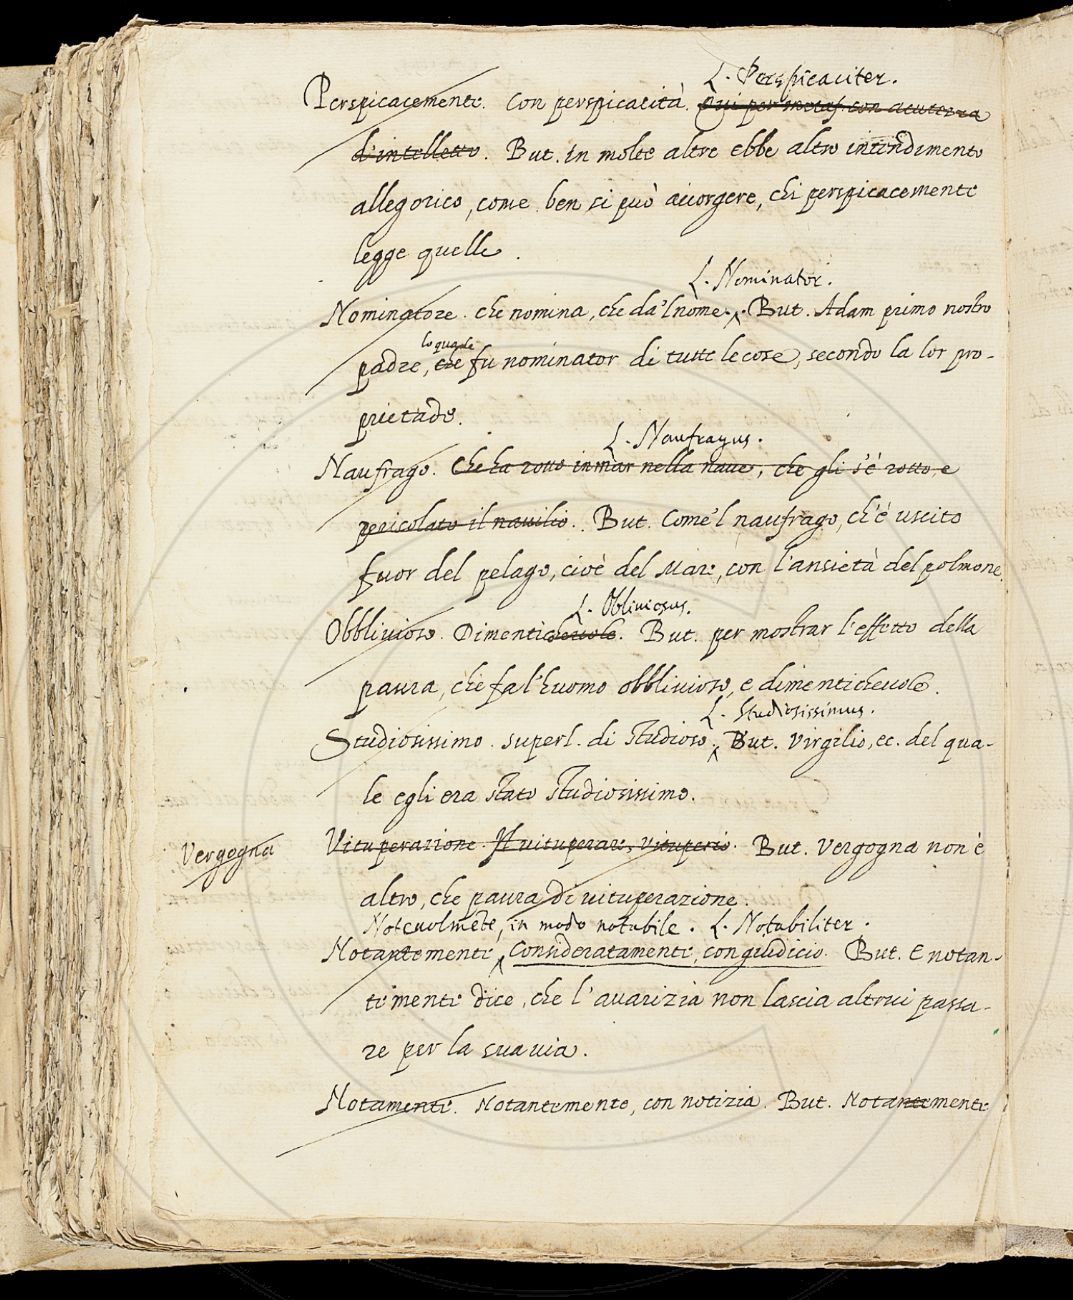 L. Perspicaciter.
Perspicacemente. Con perspicacità. Qui per metaf. con acutezza
d'intelletto. But. In molte altre ebbe altro intendimento
allegorico, come ben si può accorgere, chi perspicacemente
legge quelle.
L. Nominator.
Nominatore. che nomina, che da'l nome. But. Adam primo nostro
lo quale
padre, che fu nominator di tutte le cose, secondo la lor pro-
prietade.
L. Naufragus.
Naufrago. Che ha rotto in mar nella naue, che gli s'è rotto, e
pericolato il nauilio. But. Come'l naufrago, ch'è uscito
fuor del pelago, cioè del Mare, con l'ansietà del polmone.
L. Obliviosus.
Obbliuioso. Dimentichevole. But. per mostrar l'effetto della
paura, che fa l'huomo obbliuioso, e dimentichevole.
L. Studiosissimus.
Studiosissimo. superl. di Studioso. But. Virgilio, ec. del qua-
le egli era stato studiosissimo.
Vergogna
Vituperazione. Il uituperare, vituperio. But. Vergogna non è
altro, che paura di uituperazione.
Noteuolmēte, in modo notabile. L. Notabiliter.
Notantemente, Consideratamente, con giudicio. But. E notan-
temente dice, che l'auarizia non lascia altrui passa-
re per la sua via.
Notamente. Notantemente, con notizia. But. Notantemente